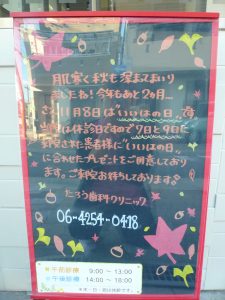 肌寒く秋も深まってまいり
ましたね！今年もあと2ヵ月…
さて11月8日は"いいはの日"です
は休診日ですので7日と9日に
来院された患者様に"いいはの日"
に合わせたプレゼントをご用意しており
ます。ご来院お待ちしております。
たろう歯科クリニック
06-4254-0418
午前診療 9:00〜13:00
午後診療 14:00〜18:00